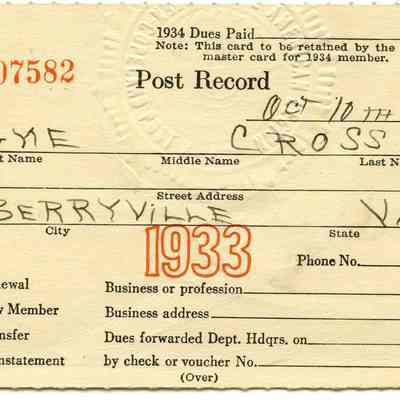 1934 Dues Paid
Note: This card to be retained by the
master card for 1934 member.
07582
Post Record
Oct 10TH
CROSS
t Name Middle Name Last N
Street Address
BERRYVILLE VA
City State
1933
Phone No.
ewal Business or profession
w Member Business address
nsfer Dues forwarded Dept. Hdqrs. on
nstatement by check or voucher No.
(Over)